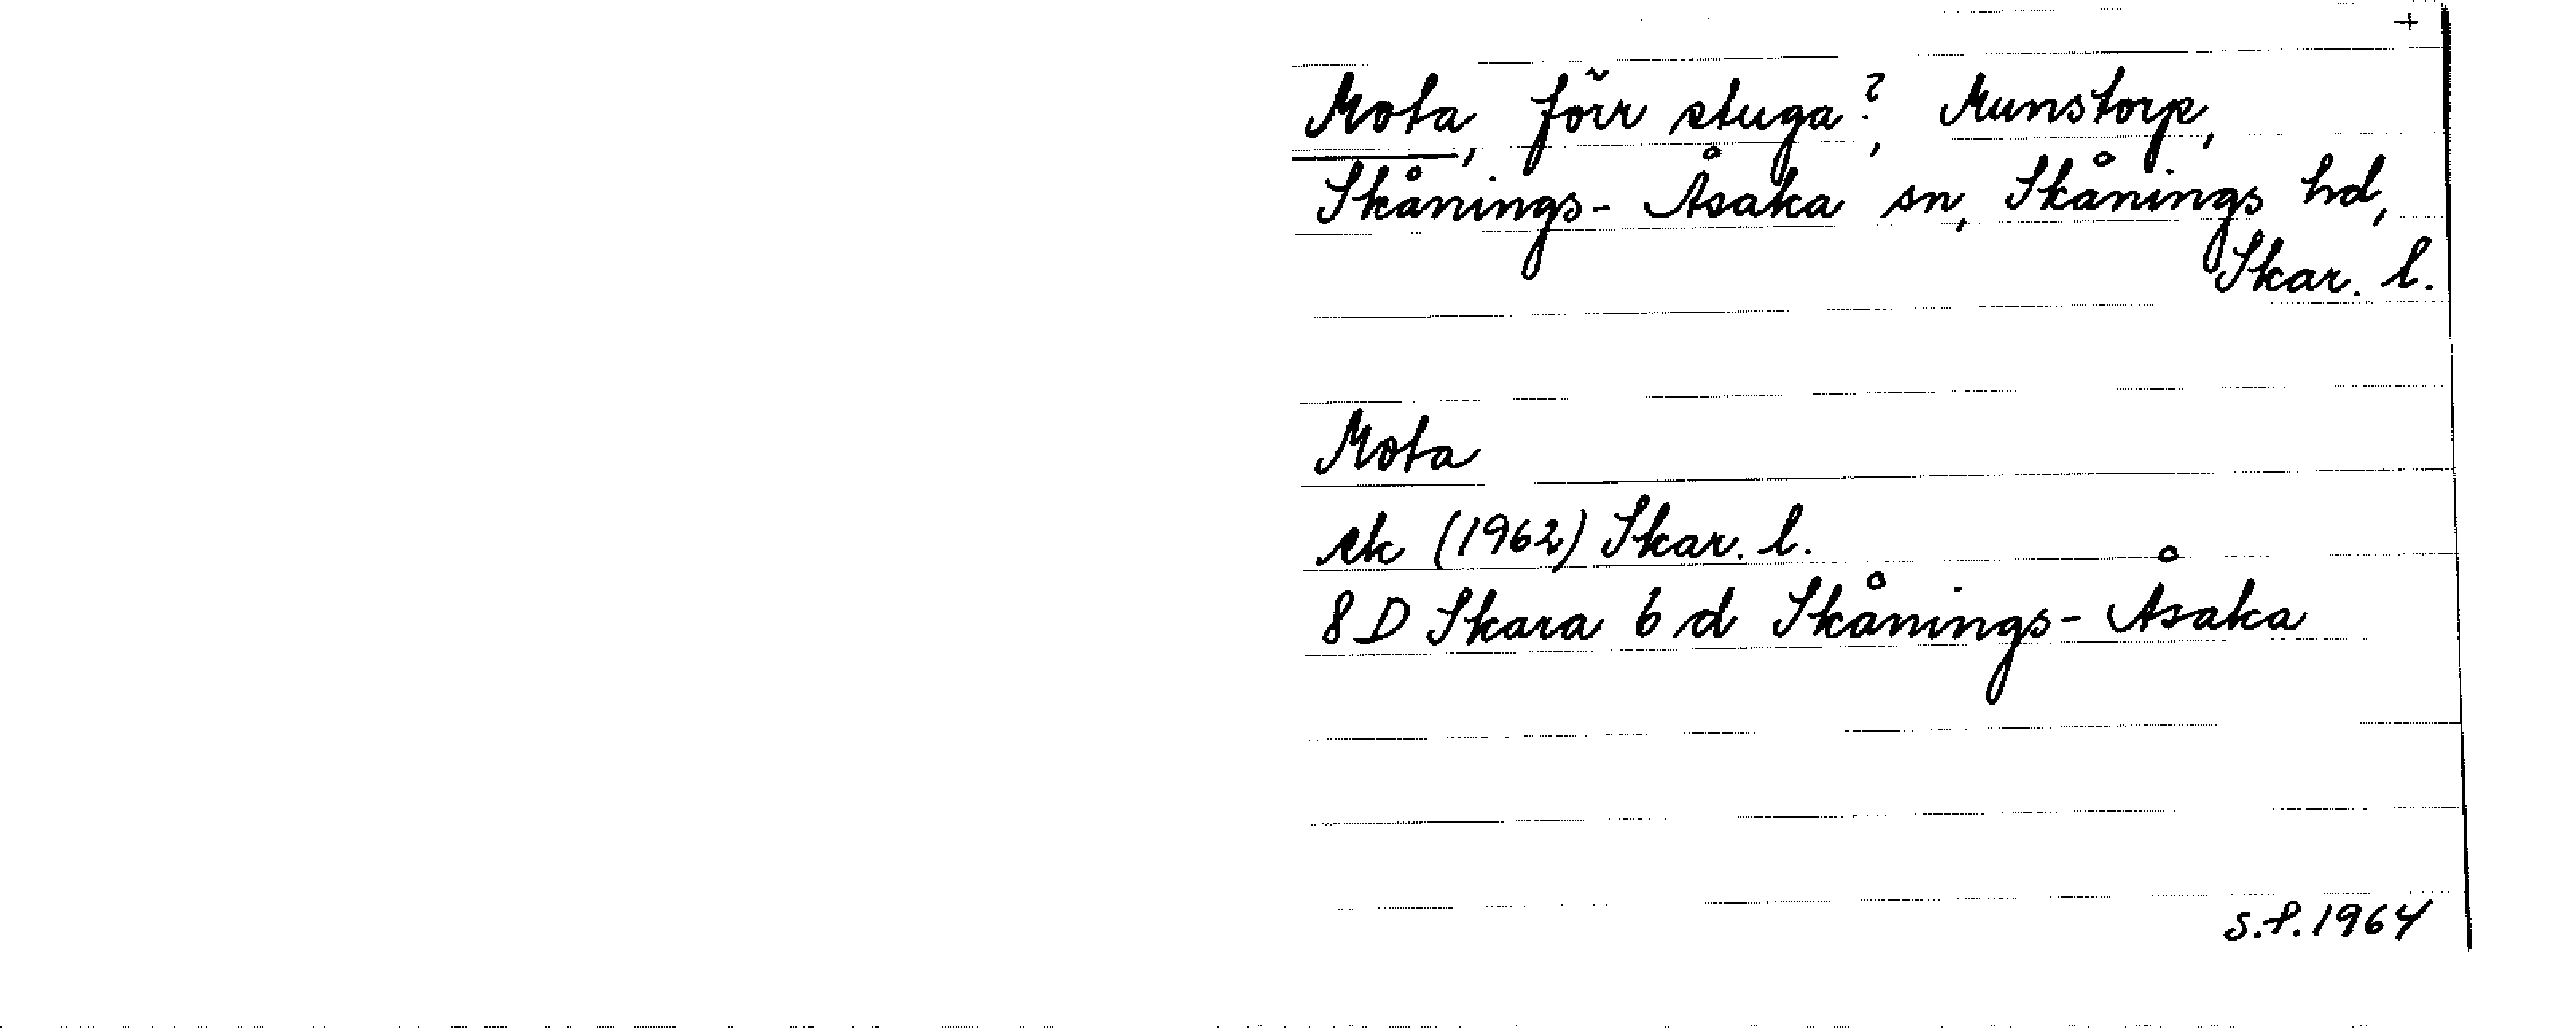 +
Mota, förr stuga?, Munstorp,
Skånings-Åsaka sn, Skånings hd,
Skar. l.
Mota
ek (1962) Skar. l.
8D Skara 6 d Skånings-Åsaka
S.F. 1964